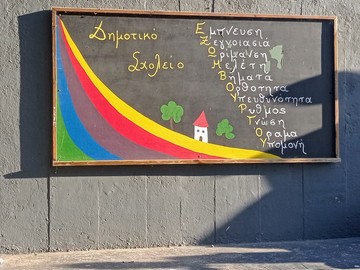 Δημοτικό
Σχολείο
Εμπνευση
Ξεγνοιασιά
Ωρίμανση
Μελέτη
Βήματα
Ορθότητα
Υπευθυνότητα
Ρυθμός
Γνώση
Οραμα
Υπομονή